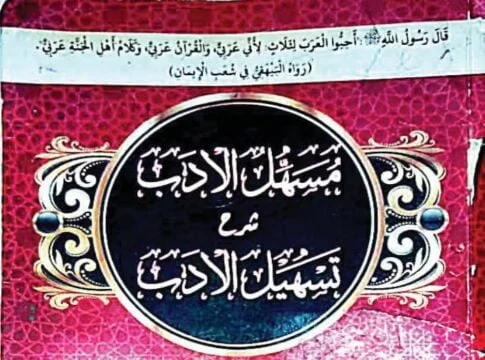 قَالَ رَسُولُ اللّٰهِ ﷺ: أَحِبُّوا الْعَرَبَ لِثَلَاثٍ: لِأَنِّي عَرَبِيٌّ، وَالْقُرْآنُ عَرَبِيٌّ، وَكَلَامُ أَهْلِ الْجَنَّةِ عَرَبِيٌّ.
(رَوَاهُ الْبَيْهَقِيُّ فِي شُعَبِ الْإِيمَانِ)
مُسَهِّلُ الْاَدَبْ
شرح
تَسْهِيْلُ الْاَدَبْ